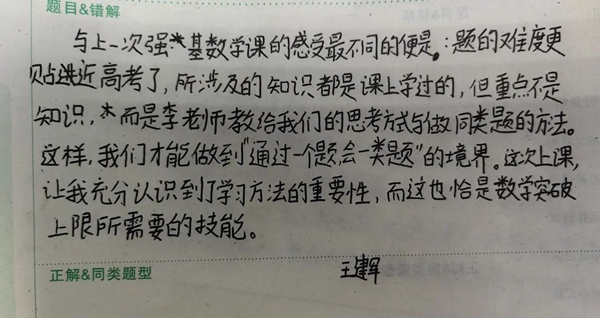 题目&错解
与上一次强基数学课的感受最不同的便是：题的难度更
贴进近高考了，所涉及的知识都是课上学过的，但重点不是
知识，而是李老师教给我们的思考方式与做同类题的方法。
这样，我们才能做到"通过一个题，会一类题"的境界。这次上课，
让我充分认识到了学习方法的重要性，而这也恰是数学突破
上限所需要的技能。
正解&同类题型